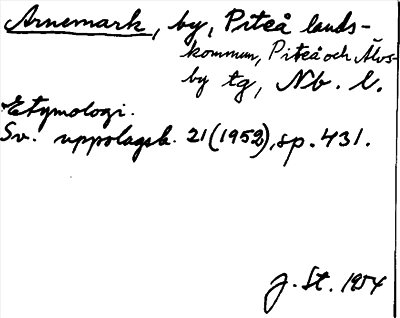 Arnemark, by, Piteå lands-
kommun, Piteå och Älvs-
by tg, Nb. l.
Etymologi.
Sv. uppslagsb. 21 (1952), sp. 431.
J. St. 1954